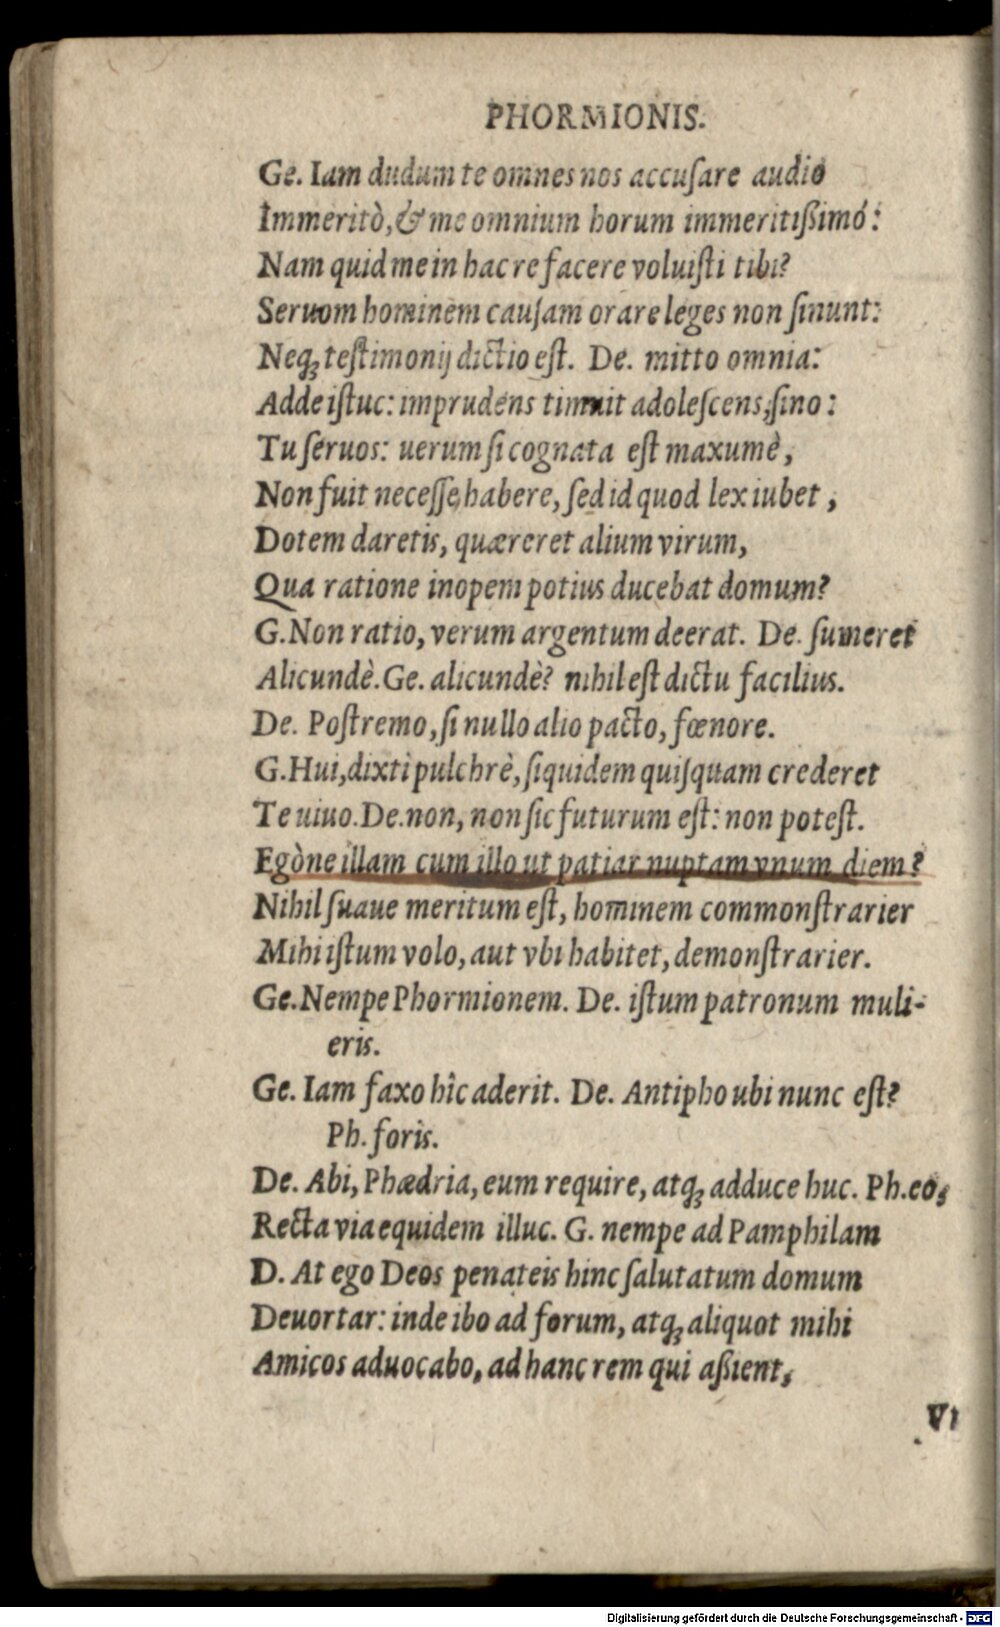 PHORMIONIS.
Ge. Iam dudum te omnes nos accuſare audio
Immeritò, & me omnium horum immeritiſsimó:
Nam quid me in hac re facere voluiſti tibi?
Seruom hominem cauſam orare leges non ſinunt:
Neqꝫ teſtimonij dictio eſt. De. mitto omnia:
Adde iſtuc: imprudens timuit adoleſcens, ſino:
Tu ſeruos: uerum ſi cognata eſt maxumè,
Non fuit neceſſe, habere, ſed id quod lex iubet,
Dotem daretis, quæreret alium virum,
Qua ratione inopem potius ducebat domum?
G. Non ratio, verum argentum deerat. De. ſumeret
Alicundè. Ge. alicundè? nihil eſt dictu facilius.
De. Poſtremo, ſi nullo alio pacto, fœnore.
G. Hui, dixti pulchrè, ſiquidem quiſquam crederet
Te uiuo. De. non, non ſic futurum eſt: non poteſt.
Egòne illam cum illo ut patiar nuptam vnum diem?
Nihil ſuaue meritum eſt, hominem commonſtrarier
Mihi iſtum volo, aut vbi habitet, demonſtrarier.
Ge. Nempe Phormionem. De. iſtum patronum muli-
eris.
Ge. Iam faxo hîc aderit. De. Antipho ubi nunc eſt?
Ph. foris.
De. Abi, Phædria, eum require, atqꝫ adduce huc. Ph. eo,
Recta via equidem illuc. G. nempe ad Pamphilam
D. At ego Deos penateis hinc ſalutatum domum
Deuortar: inde ibo ad forum, atqꝫ aliquot mihi
Amicos aduocabo, ad hanc rem qui aſsient,
Vt
Digitalisierung gefördert durch die Deutsche Forschungsgemeinschaft - DFG